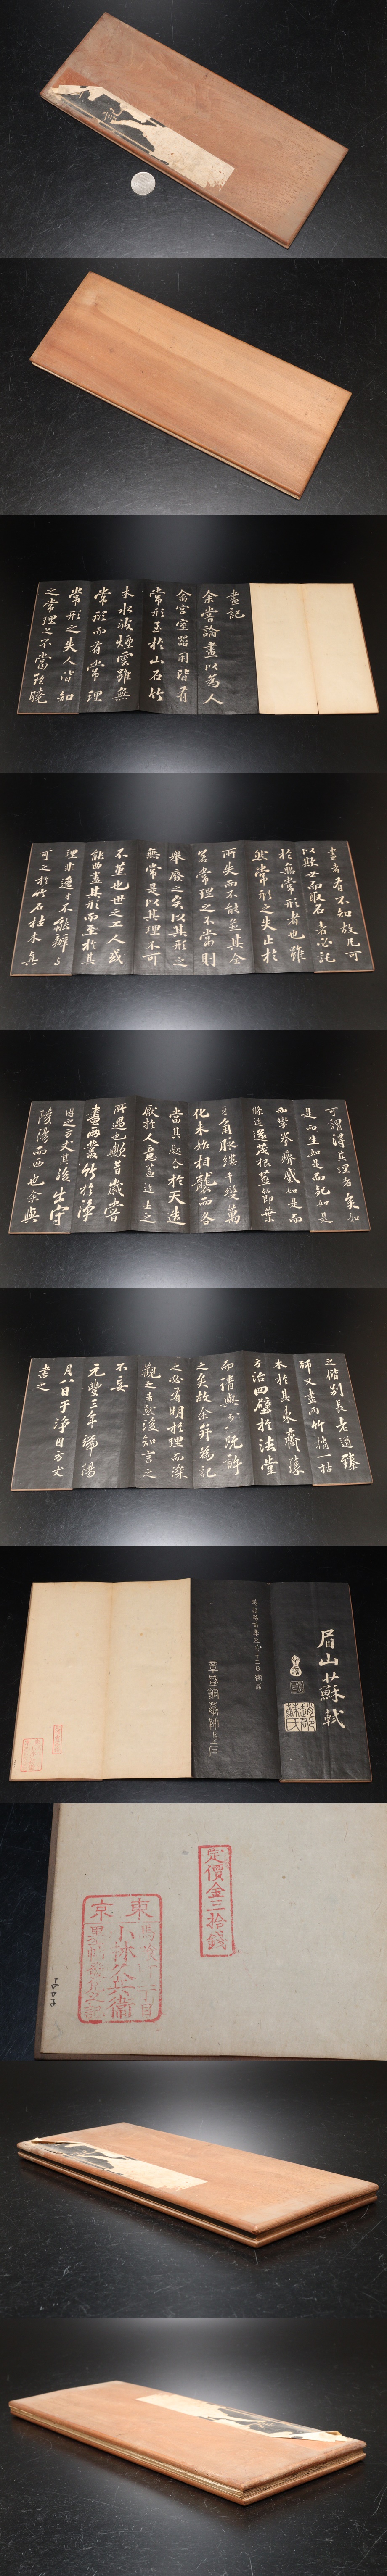 畫記
余嘗論畫以為人
禽宮室器用皆有
常形至於山石竹
木水波煙雲雖無
常形而有常理
常形之失人皆知
之常理之不當雖曉
畫者有不知故凡可
以欺世而取名者必託
於無常形者也雖
然常形之失止於
所失而不能病其全
若常理之不當則
舉廢之矣以其形之
無常是以其理不可
不謹也世之工人或
能曲盡其形而至於其
理非逸才不能辨與
可之於竹石枯木真
可謂得其理者矣如
是而生如是而死如是
而攣拳瘠蹙如是而
條達遂茂根莖節葉
牙角脈縷千變萬
化未始相襲而各
當其處合於天造
厭於人意蓋達士之
所寓也歟昔歲嘗
畫兩叢竹於淨
因之方丈其後出守
陵陽而西也余與
之偕別長老道臻
師又畫兩竹梢一枯
木於其東齋臻
方治四壁於法堂
而請與可既許
之矣故余并為記
之必有明於理而深
觀之者然後知言之
不妄
元豐三年端陽
月八日于淨因方丈
書之
眉山蘇軾
定價金三拾錢
東京
小林久兵衛